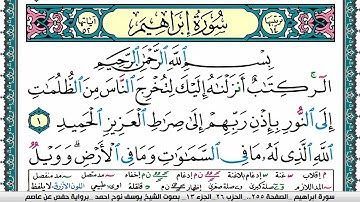 سُورَةُ إِبْرَاهِيم
بِسْمِ اللَّهِ الرَّحْمَٰنِ الرَّحِيمِ
الٓر كِتَٰبٌ أَنزَلْنَٰهُ إِلَيْكَ لِتُخْرِجَ النَّاسَ مِنَ الظُّلُمَٰتِ
إِلَى النُّورِ بِإِذْنِ رَبِّهِمْ إِلَىٰ صِرَٰطِ الْعَزِيزِ الْحَمِيدِ ١
اللَّهِ الَّذِي لَهُۥ مَا فِي السَّمَٰوَٰتِ وَمَا فِي الْأَرْضِ ۗ وَوَيْلٌ
سورة إبراهيم . الصفحة ٢٥٥ . الحزب ٢٦ الجزء ١٣ . بصوت الشيخ يوسف نوح أحمد برواية حفص عن عاصم